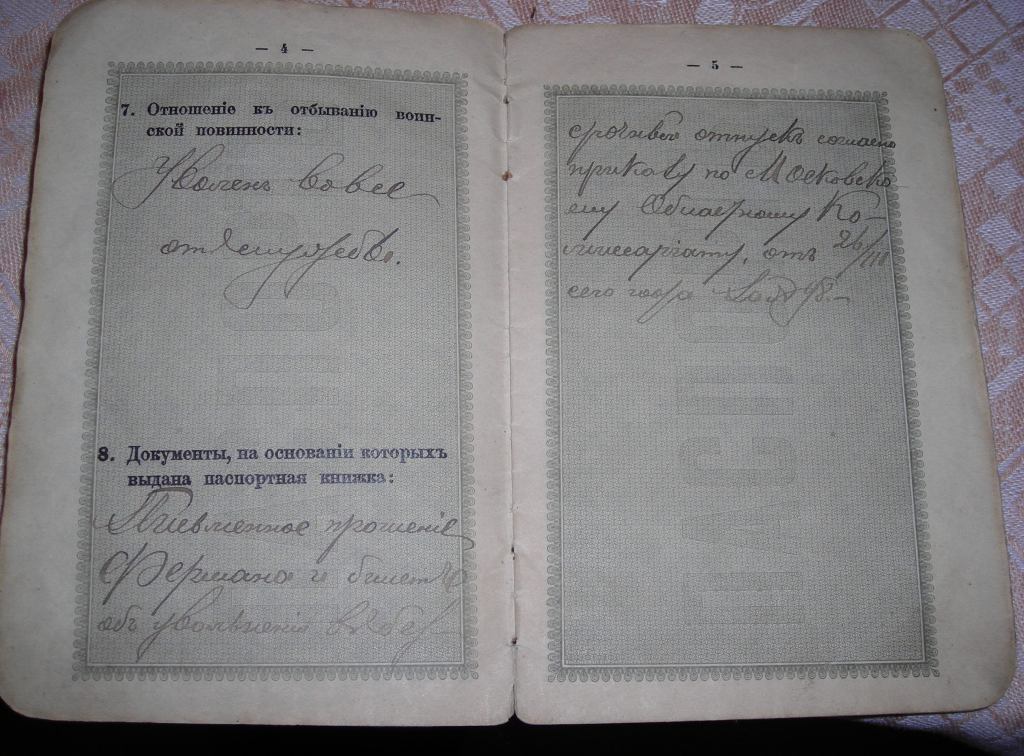 — 4 —
7. Отношеніе къ отбыванію воин-
ской повинности:
Уволенъ вовсе
отъ службы.
8. Документы, на основаніи которыхъ
выдана паспортная книжка:
Письменное прошеніе
Фермана и билетъ
объ увольненіи въ без-
— 5 —
срочный отпускъ согласно
приказу по Московско
му Областному Ко-
миссаріату, отъ 26/III
сего года